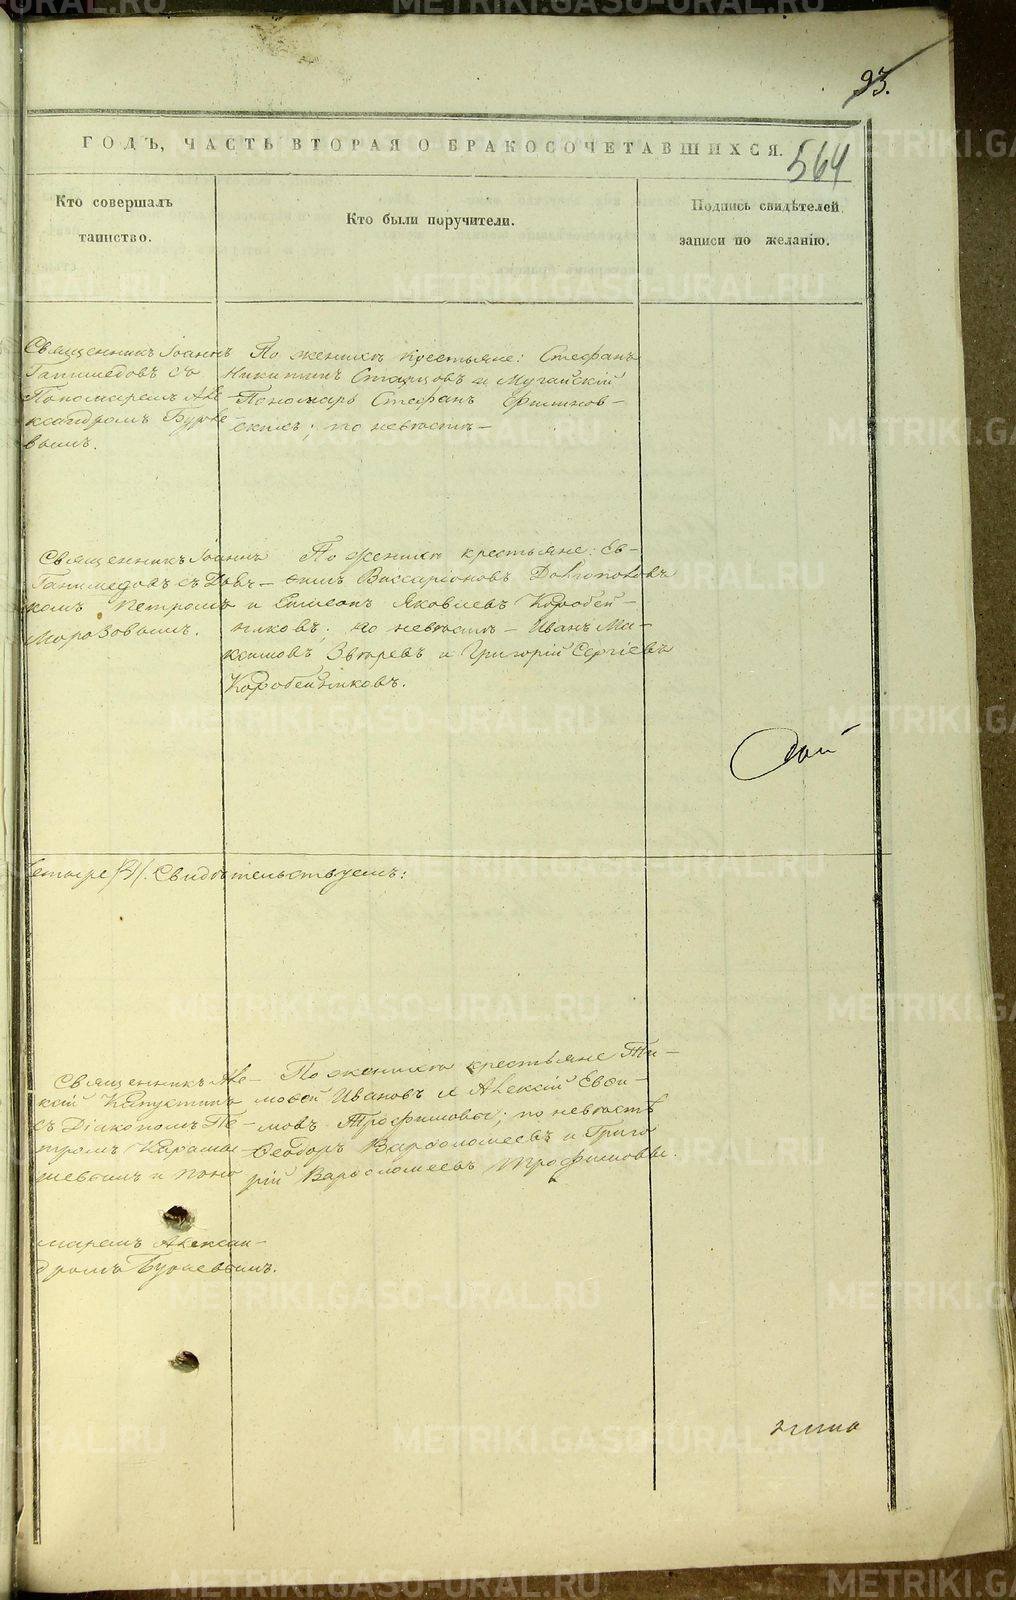 93.
ГОДЪ, ЧАСТЬ ВТОРАЯ О БРАКОСОЧЕТАВШИХСЯ.
564
Кто совершалъ
таинство.
Кто были поручители.
Подпись свидѣтелей
записи по желанію.
Священникъ Іоаннъ
Ганимедовъ съ
Пономаремъ Але-
ксандромъ
вымъ.
По женихѣ крестьяне: Стефанъ
Никитинъ Старцовъ и Мугайскій
Пономарь Стефанъ
скихъ; по невѣстѣ —
Священникъ Іоаннъ
Ганимедовъ съ Дьяч-
комъ Петромъ
Морозовымъ.
По женихѣ крестьяне: Ев-
Виссаріоновъ Долгополовъ
и Симеонъ Яковлевъ Коробей-
никовъ; по невѣстѣ — Иванъ Ма-
ксимовъ Звѣревъ и Григорій Сергіевъ
Коробейниковъ.
четыре /4/. Свидѣтельствуемъ:
Священникъ Але-
ксій Капустинъ
съ Діакономъ Пе-
тромъ
и поно
маремъ Алексан-
дромъ
По женихѣ крестьяне Ти-
мофей Ивановъ и Алексій Евфи-
мовъ Трофимовы; по невѣстѣ
Ѳеодоръ Варѳоломеевъ и Григо
рій Варѳоломеевъ Трофимовы.
METRIKI.GASO-URAL.RU